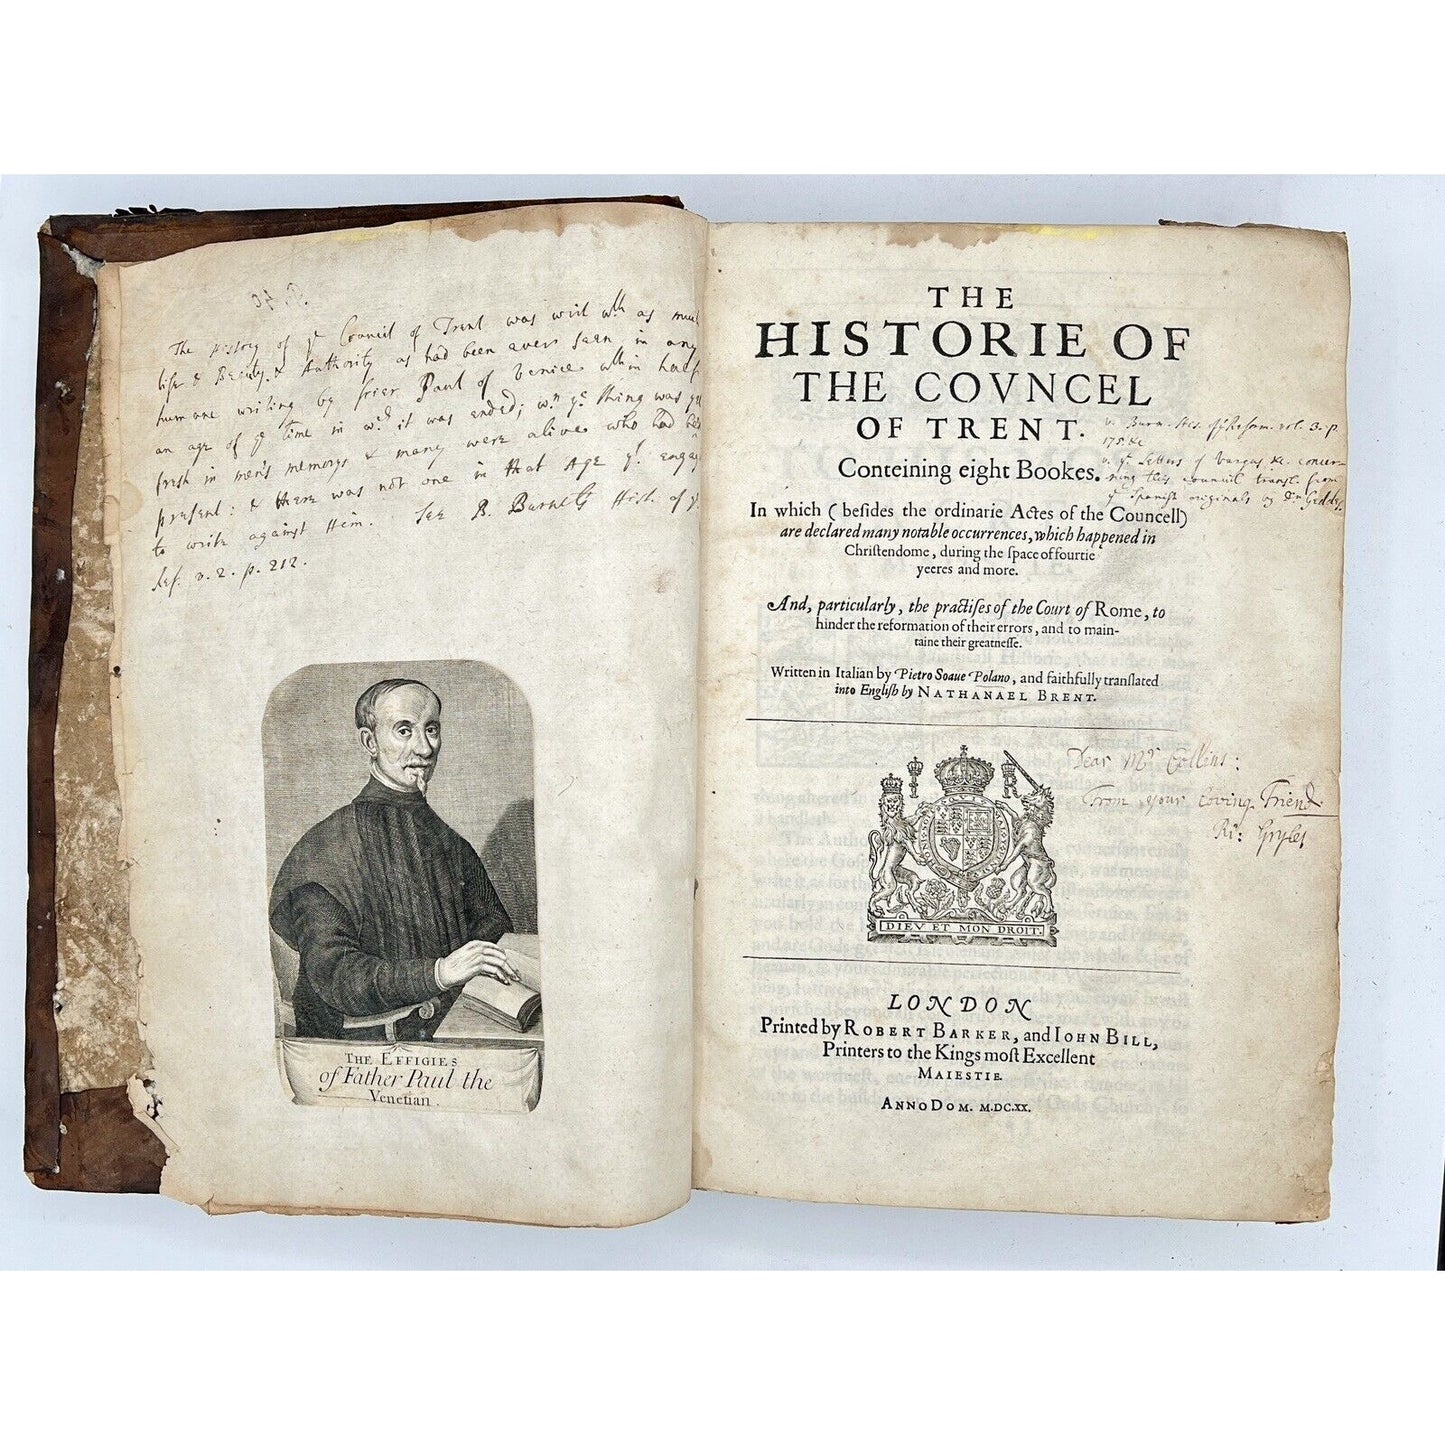 The History of yᵉ Council of Trent was writ wᵗʰ as much
life & Beauty, & Authority as had been ever seen in any
humane writing by frier Paul of Venice wᵗʰin half
an age of yᵉ time in wᶜʰ it was ended; wⁿ yᵉ thing was yet
fresh in men's memorys & many were alive who had been
present: & there was not one in that Age yᵗ engag
to write against Him. See B. Burnet's Hist. of yᵉ
Ref. v. 2. p. 212.
THE EFFIGIES
of Father Paul the
Venetian.
THE
HISTORIE OF
THE COVNCEL
OF TRENT.
Conteining eight Bookes.
v. Burn. Hist. of Reform. vol. 3. p.
v. yᵉ Letters of Vargas &c. concer-
ning this council transl. from
yᵉ Spanish originals by Dʳ Geddes.
In which (beſides the ordinarie Actes of the Councell)
are declared many notable occurrences, which happened in
Chriſtendome, during the ſpace of fourtie
yeeres and more.
And, particularly, the practiſes of the Court of Rome, to
hinder the reformation of their errors, and to main-
taine their greatneſſe.
Written in Italian by Pietro Soaue Polano, and faithfully tranſlated
into Engliſh by NATHANAEL BRENT.
I R
Dear Mʳ Collins:
From your loving Friend
Ri: Gryles
DIEV ET MON DROIT.
LONDON
Printed by ROBERT BARKER, and IOHN BILL,
Printers to the Kings moſt Excellent
MAIESTIE.
ANNO DOM. M.DC.XX.